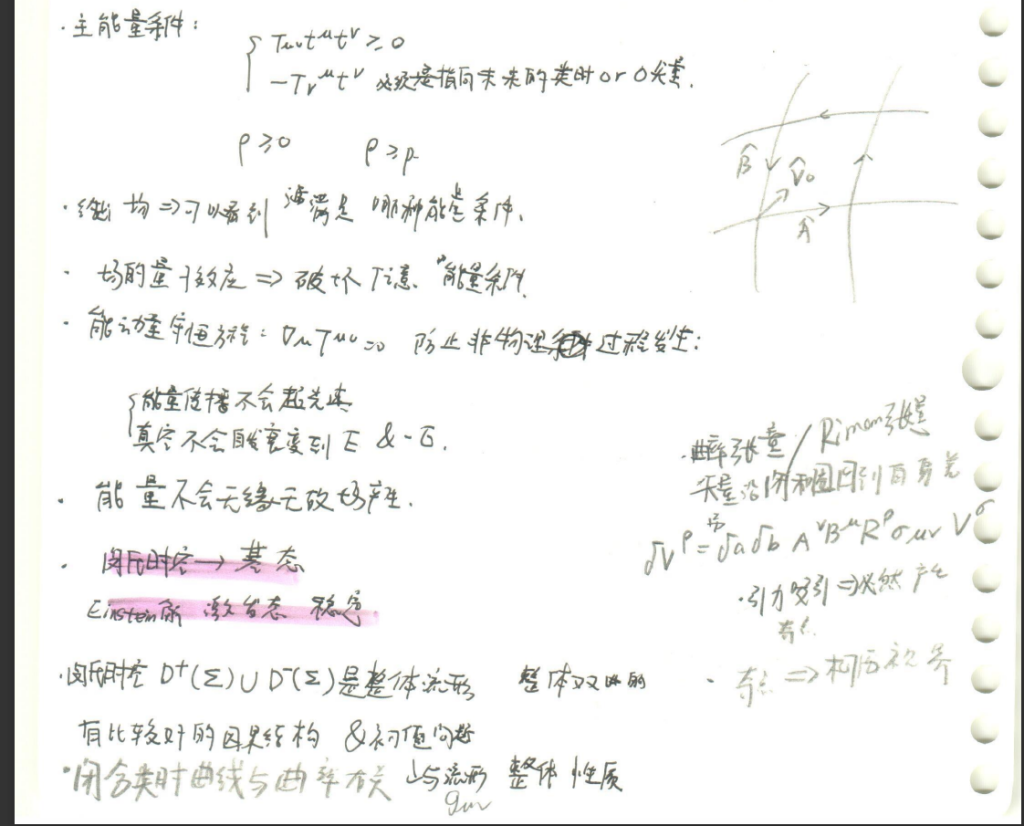 ·主能量条件:
Tμνt^μt^ν ≥ 0
-Tν^μt^ν 必须是指向未来的类时or 0类.
ρ≥0 ρ≥p
·给出 均 ⇒ 可以看到 满足 哪种能量条件.
· 场的量子效应 ⇒ 破坏 任意 "能量条件
· 能动量守恒方程: ∇μT^μν=0 防止非物理过程发生:
能量传播不会超光速
真空不会自发衰变到 E & -E.
· 能量不会无缘无故场产生.
· 闵氏时空 → 基态
Einstein 激发态 稳定.
·闵氏时空 D⁺(Σ)∪D⁻(Σ)是整体流形 整体双曲的
有比较好的因果结构 &初值问题
·闭合类时曲线与曲率有关 与流形 整体性质
gμν
B̂ V̂₀
Â
·曲率张量/Riman张量
矢量沿闭和圈回到自身差
δV^ρ=δaδb A^νB^μR^ρσμν V^σ
·引力吸引⇒必然产生
奇点
· 奇点 ⇒ 柯西视界